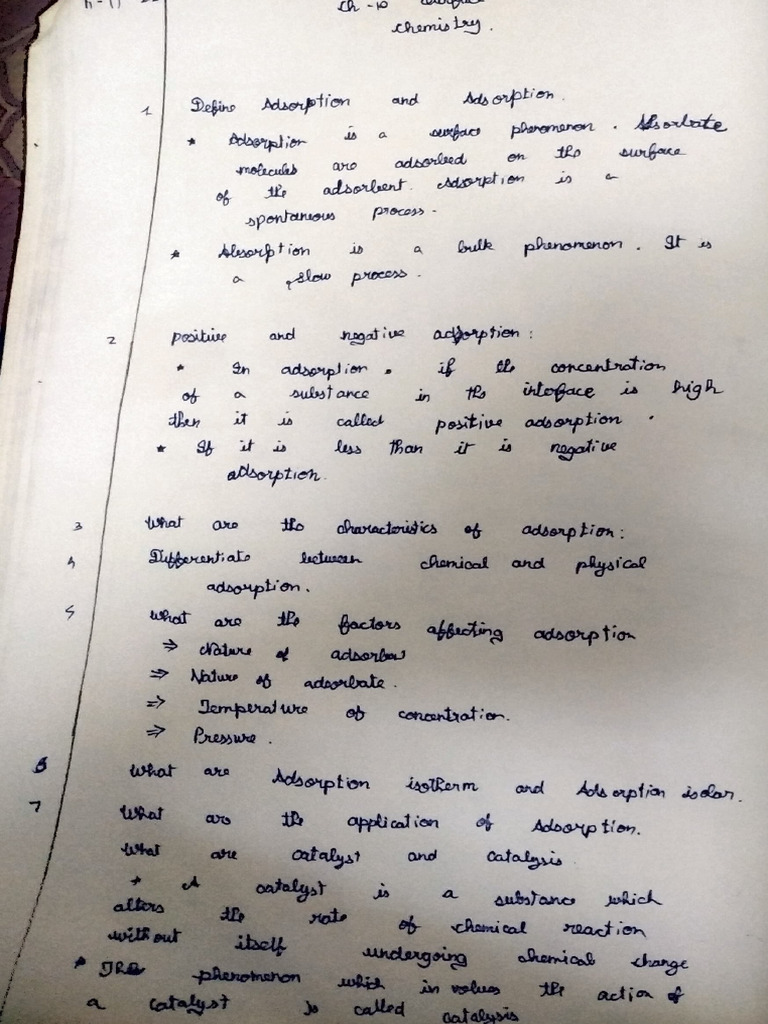 ch - 10
chemistry.
1 Define Adsorption and Adsorption.
* Adsorption is a surface phenomenon. Absorbate
molecules are adsorbed on the surface
of the adsorbent. Adsorption is a
spontaneous process.
* Absorption is a bulk phenomenon. It is
a slow process.
2 positive and negative adsorption:
* In adsorption. if the concentration
of a substance in the interface is high
then it is called positive adsorption.
* If it is less than it is negative
adsorption.
3 What are the characteristics of adsorption:
4 Differentiate between chemical and physical
adsorption.
5 What are the factors affecting adsorption
⇒ Nature of
⇒ Nature of adsorbate.
⇒ Temperature of concentration.
⇒ Pressure.
6 What are Adsorption isotherm and Adsorption isobar.
7 What are the application of Adsorption.
What are catalyst and catalysis
* A catalyst is a substance which
alters the rate of chemical reaction
without itself undergoing chemical change
* phenomenon which in volues the action of
a catalyst is called catalysis